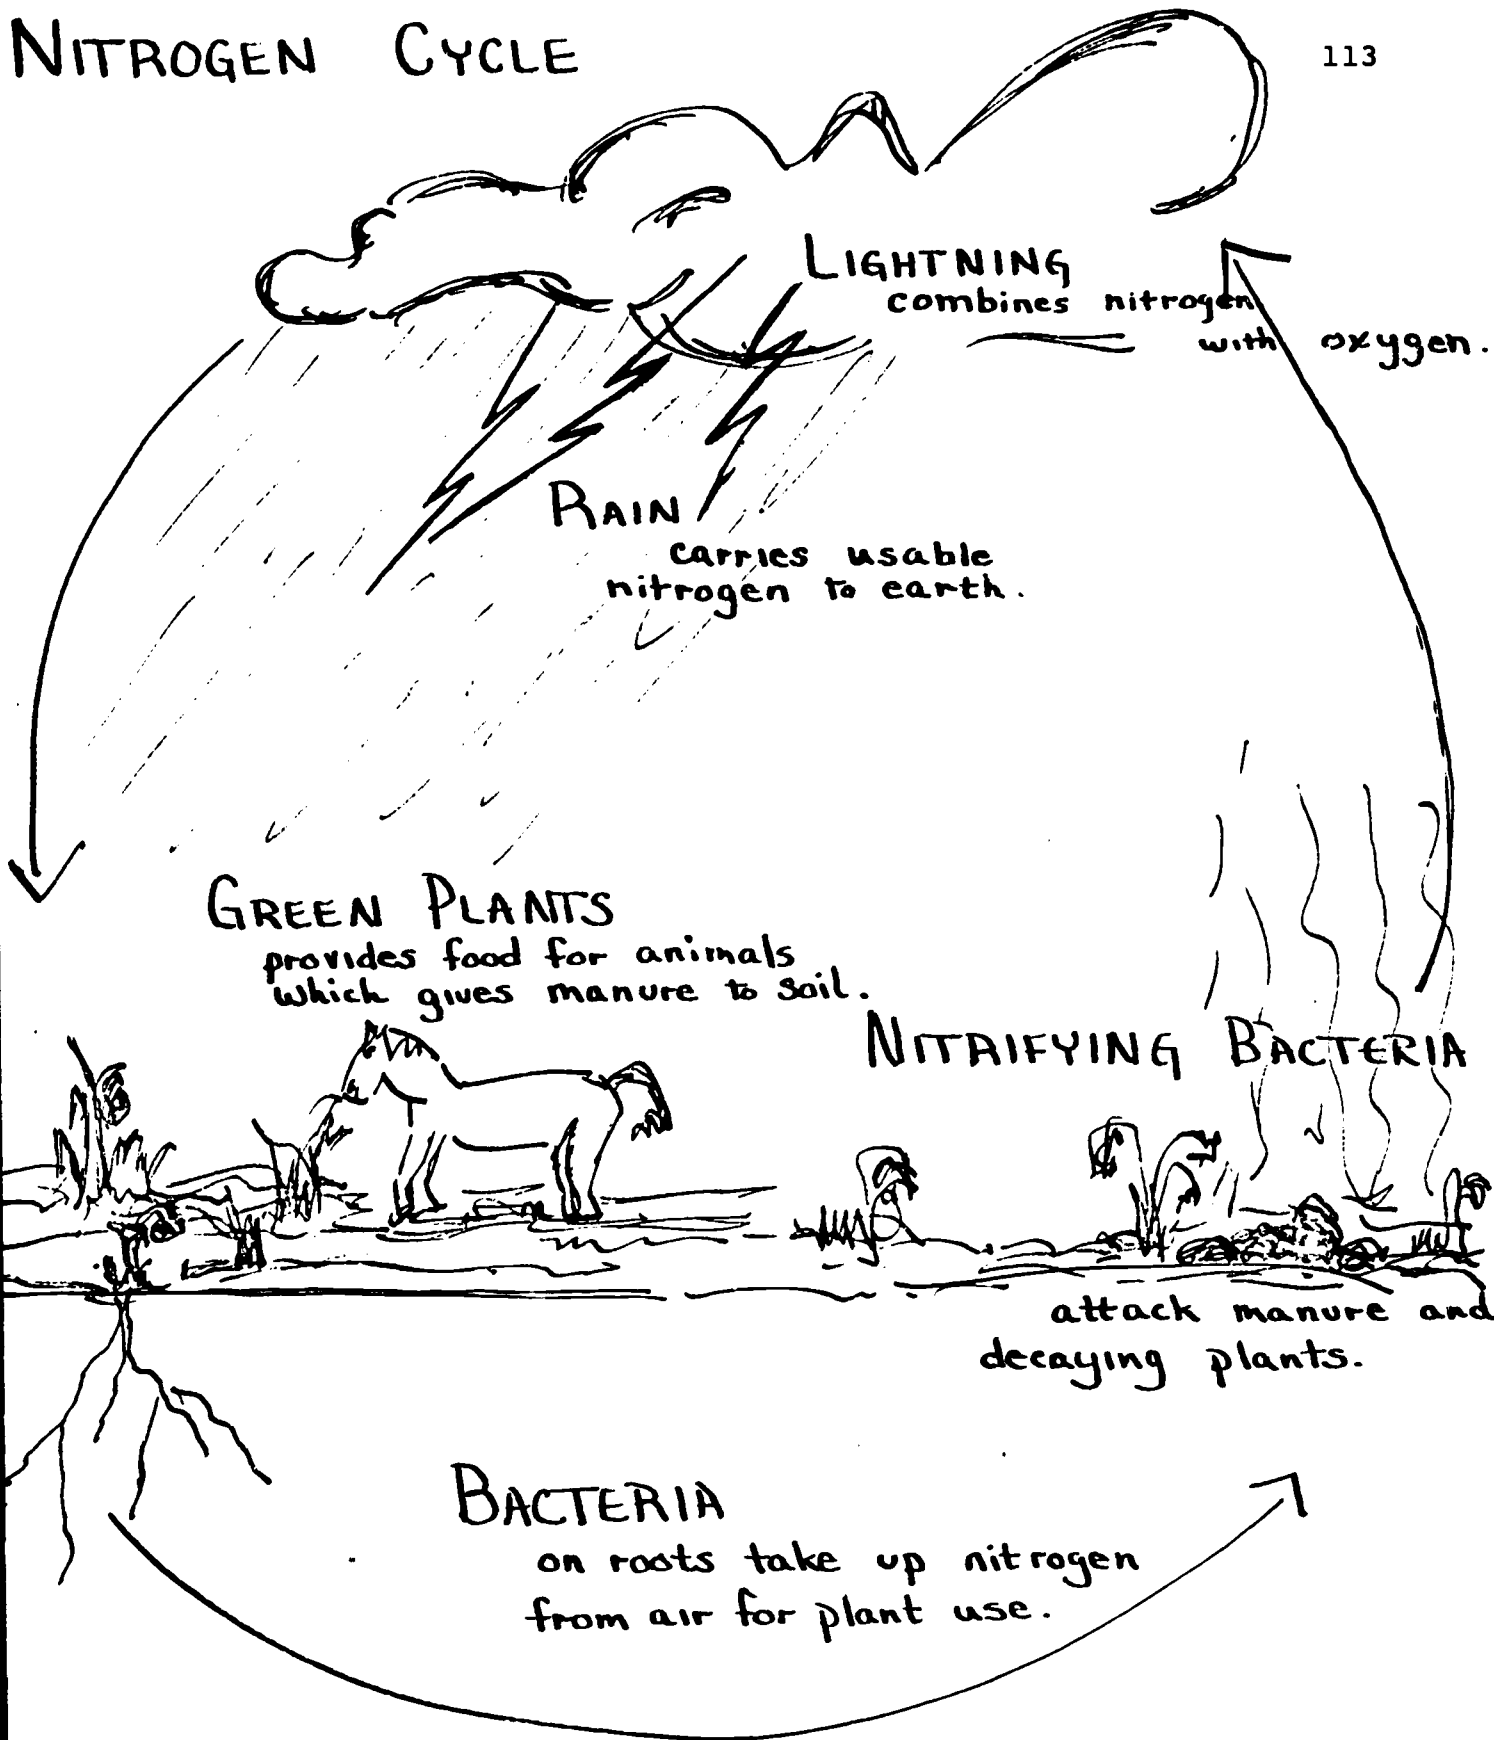 NITROGEN CYCLE
113
LIGHTNING
combines nitrogen
with oxygen.
RAIN
carries usable
nitrogen to earth.
GREEN PLANTS
provides food for animals
which gives manure to soil.
NITRIFYING BACTERIA
attack manure and
decaying plants.
BACTERIA
on roots take up nitrogen
from air for plant use.